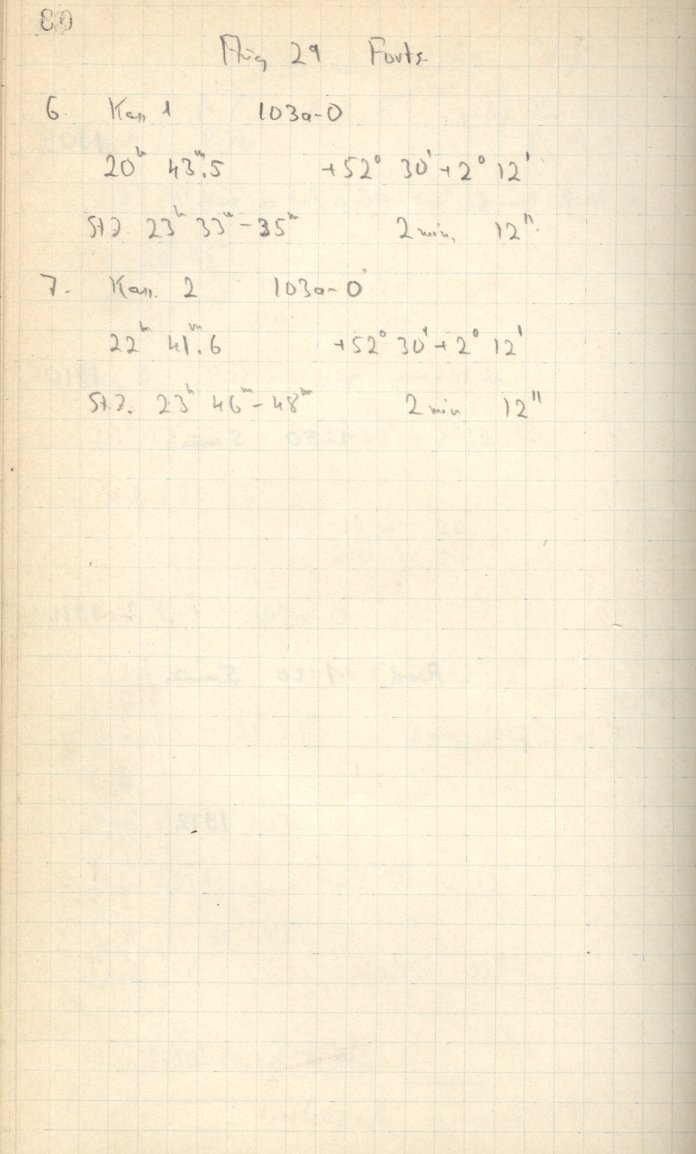 80
Aug 29 Forts.
6. Kass 1 103a-O
20ʰ 43ᵐ.5 +52° 30' + 2° 12'
St.Z. 23ʰ 33ᵐ - 35ᵐ 2 min, 12"
7. Kass. 2 103a-O
22ʰ 41ᵐ.6 +52° 30' + 2° 12'
St.Z. 23ʰ 46ᵐ - 48ᵐ 2 min 12"